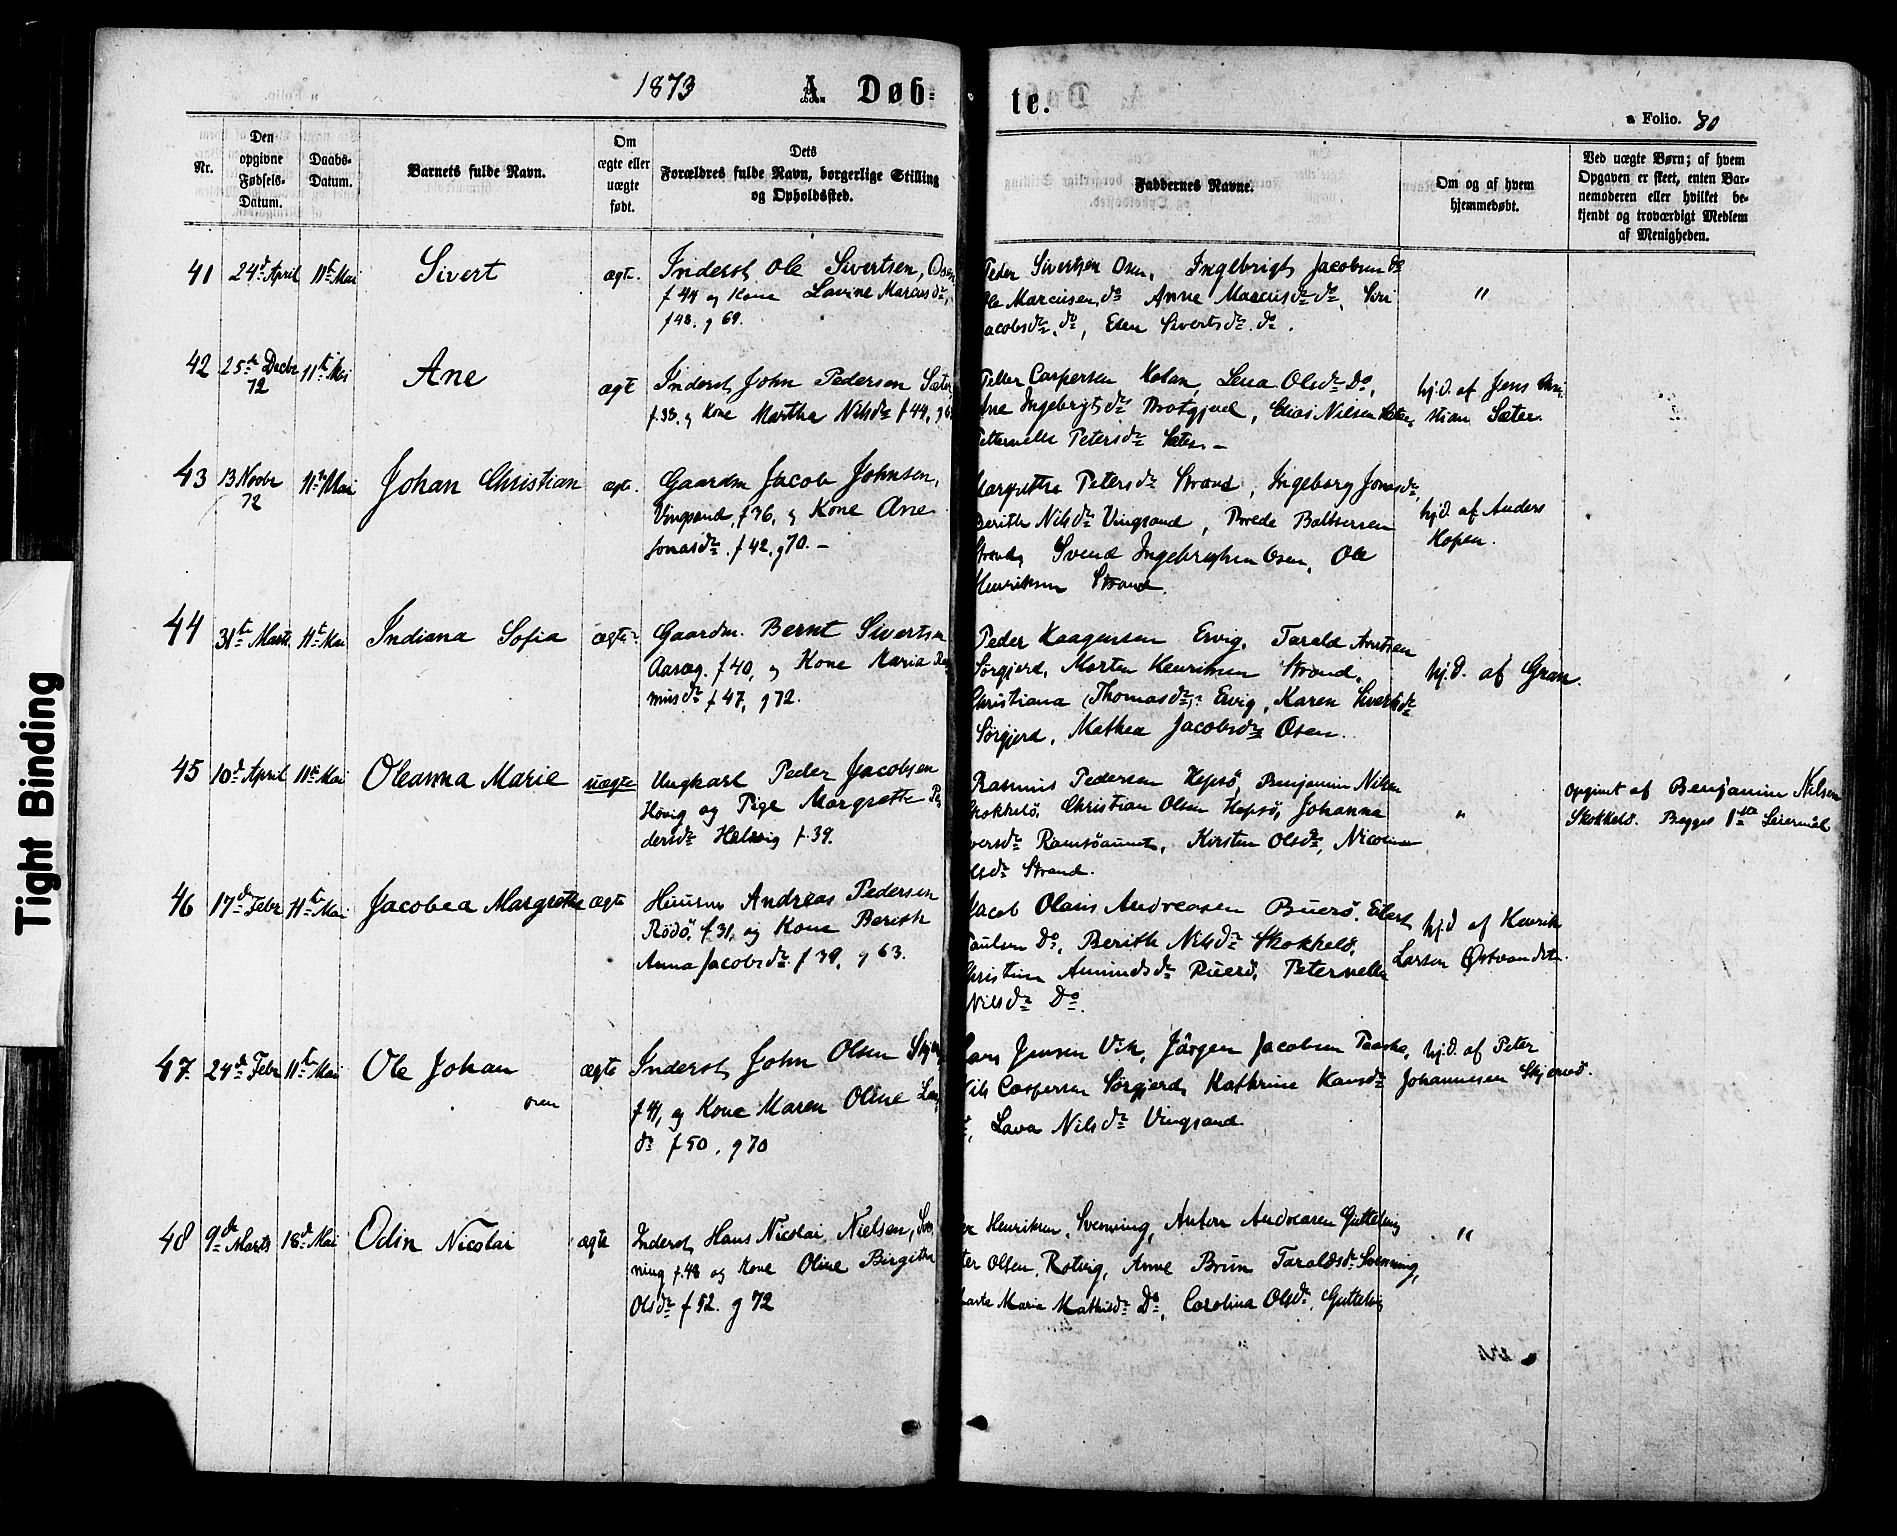 1873 A. Døb-
te.
a Folio. 80
Nr.
Den opgivne Fødsels-Datum.
Daabs-Datum.
Barnets fulde Navn.
Om ægte eller uægte født.
Dets Forældres fulde Navn, borgerlige Stilling og Opholdssted.
Faddernes Navne.
Om og af hvem hjemmedøbt.
Ved uægte Børn; af hvem Opgaven er skeet, enten Barnemoderen eller hvilket bekjendt og troværdigt Medlem af Menigheden.
41 24de April 11te Mai Sivert ægte.
Inderst Ole Sivertsen, Osen
f 44 og Kone Lavine Marcusdr,
f 48. g 69.
Peder Sivertsen Osen, Ingebrigt Jacobsen Do
Ole Marcusen, do Anne Marcusdr do, Siri
Jacobsdr, do, Elen Sivertsdr do.
"
42 25de Decbr 72 11te Mai Ane ægte
Inderst John Pedersen Sæter,
f. 33, g Kone Martha Nilsdr f 44, g 6
Petter Caspersen Hofan, Lena Olsdr Do,
Ane Ingebrigtsdr Brotgjerd, Elias Nilsen Sæter,
Petternelle Petersdr Sæter. –
hj.d. af Jens Chri-
stian Sæter.
43 13 Novbr 72 11te Mai Johan Christian ægte.
Gaardm Jacob Johnsen,
Vingsand, f 36, g Kone Ane
Jonasdr. f 42. g 70. –
Margrethe Petersdr Strand, Ingeborg Jonasdr,
Berith Nilsdr Vingsand, Brede Baltsersen
Strand, Svend Ingebrigtsen Osen, Ole
Henriksen Strand.
hj.d. af Anders
Hopen.
44 31te Marts 11te Mai Indiana Sofia ægte
Gaardm. Bernt Sivertsen
Aaseg. f 40, g Kone Maria Ras
musdr f 47, g 72.
Peder Haagensen Ervig, Tarald Arntsen
Sörgjerd, Morten Henriksen Strand,
Christiana (Thomasdr) Ervig, Karen Sivertsdr
Sörgjerd, Mathea Jacobsdr Osen.
hj.d. af Gran.
45 10de April 11te Mai Oleanna Marie uægte
Ungkarl Peder Jacobsen
Hövig og Pige Margrethe Pe
dersdr Halsvig f 39.
Rasmus Pedersen Hepsö, Benjamin Nilsen
Skokkelö, Christian Olsen Hepsö, Johanna
Iversdr Ramsöaunet, Kirsten Olsdr, Nicoline
Olsdr Strand.
"
opgivet af Benjamin Nilsen
Skokkelö. Begges 1ste Leiermål
46 17de Febr 11te Mai Jacobea Margrethe ægte
Huusm Andreas Pedersen
Rödö, f. 31, og Kone Berith
Anna Jacobsdr f 39, g 63.
Jacob Olaus Andreasen Buerö, Edert
Paulsen Do, Berith Nilsdr Skokkelö,
Christine Amundsdr Buerö, Peternelle
Nilsdr Do.
hj.d af Henrik
Larsen Østvandet.
47 24de Febr 11te Mai Ole Johan ægte
Inderst John Olsen Skjer
f 41, og Kone Maren Oline Lar
dr f 50, g 70
Jensen Vik, Jörgen Jacobsen Paaske,
Nils Caspersen Sörgjerd, Kathrine Hansdr
Lava Nilsdr Vingsand
hj.d. af Peter
Johannesen Skjervö.
48 9de Marts 18de Mai Odin Nicolai ægte
Inderst Hans Nicolai Nielsen, Sven
ning f. 48 og Kone Oline Birgitha
Olsdr f 52. g 72
Henriksen, Svenning, Anton Andreasen Guttelvig
Olsen, Rotvig, Anne Brun Taraldsdr Svenning,
Maria Mathisdr Do, Carolina Olsdr, Guttelvig
"
Tight Binding